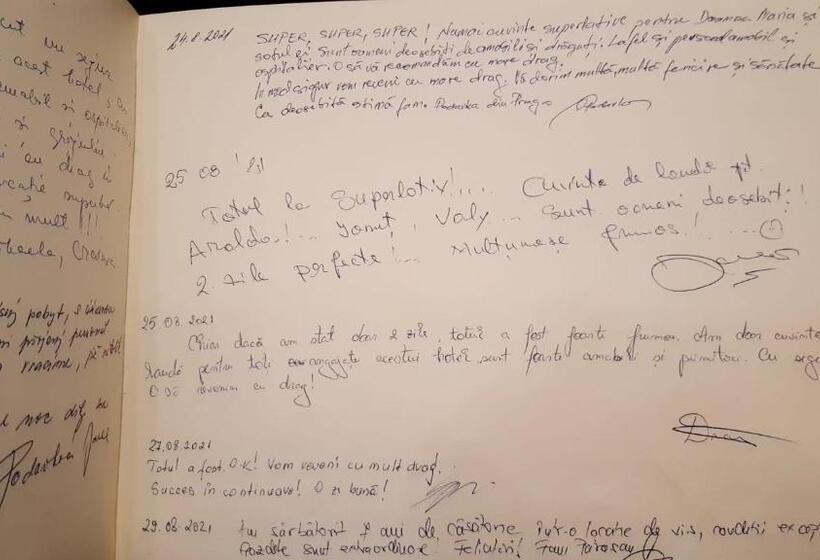 cut un sejur
acest hotel
amabil si ospitalier
si grijuliu
au drag
mult !!!
pobyt, s
personál
vracíme,
moc díky za
24.8.2021
SUPER, SUPER, SUPER! Numai cuvinte superlative pentru Doamna Maria și
soțul ei. Sunt oameni deosebiți de amabili și drăguți. La fel și personal amabil și
ospitalier. O să vă recomandăm cu mare drag.
In mod sigur vom reveni cu mare drag. Vă dorim multă, multă fericire și sănătate
Ca deosebită stimă fam. Podavka din Praga
25 08 '21
Totul la superlativ!.... Cuvinte de laudă pt.
Araldo!... Ionuț, Valy... sunt oameni deosebiți!
2 zile perfecte!... Mulțumesc frumos!....
25.08.2021
Chiar dacă am stat doar 2 zile, totul a fost foarte frumos. Am doar cuvinte
laudă pentru toți angajații acestui hotel, sunt foarte amabili și primitori. Cu
O să revenim cu drag!
27.08.2021
Totul a fost O.K! Vom reveni cu mult drag.
Succes în continuare! O zi bună!
29.08.2021 Am sărbătorit 7 ani de căsătorie într-o locație de vis, condiții
Gazdele sunt extraordinare. Felicitări! Fam